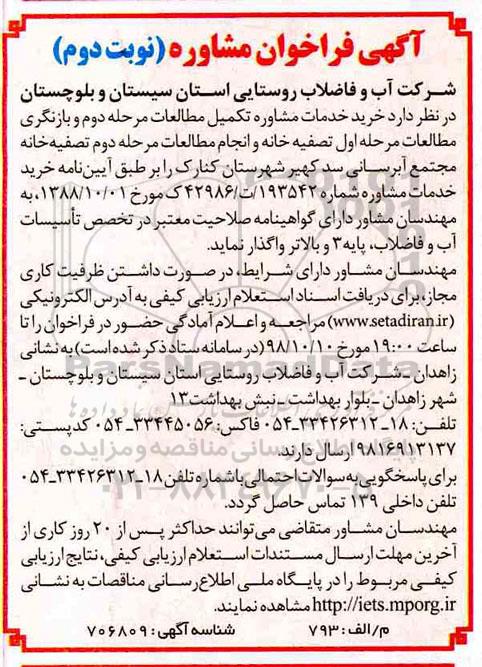 آگهی فراخوان مشاوره (نوبت دوم)
شرکت آب و فاضلاب روستایی استان سیستان و بلوچستان
در نظر دارد خرید خدمات مشاوره تکمیل مطالعات مرحله دوم و بازنگری
مطالعات مرحله اول تصفیه خانه و انجام مطالعات مرحله دوم تصفیه‌خانه
مجتمع آبرسانی سد کهیر شهرستان کنارک را بر طبق آیین‌نامه خرید
خدمات مشاوره شماره ۱۹۳۵۴۲/ت/۴۲۹۸۶ ک مورخ ۱۳۸۸/۱۰/۰۱، به
مهندسان مشاور دارای گواهینامه صلاحیت معتبر در تخصص تأسیسات
آب و فاضلاب، پایه ۳ و بالاتر واگذار نماید.
مهندسان مشاور دارای شرایط، در صورت داشتن ظرفیت کاری
مجاز، برای دریافت اسناد استعلام ارزیابی کیفی به آدرس الکترونیکی
(www.setadiran.ir) مراجعه و اعلام آمادگی حضور در فراخوان را تا
ساعت ۱۹:۰۰ مورخ ۹۸/۱۰/۱۰ (در سامانه ستاد ذکر شده است) به نشانی
زاهدان - شرکت آب و فاضلاب روستایی استان سیستان و بلوچستان -
شهر زاهدان - بلوار بهداشت - نبش بهداشت ۱۳
تلفن: ۱۸-۳۳۴۲۶۳۱۲-۰۵۴ فاکس: ۳۳۴۴۵۰۵۶-۰۵۴ کدپستی:
۹۸۱۶۹۱۳۱۳۷ ارسال دارند.
برای پاسخگویی به سوالات احتمالی با شماره تلفن ۱۸-۳۳۴۲۶۳۱۲-۰۵۴
تلفن داخلی ۱۳۹ تماس حاصل گردد.
مهندسان مشاور متقاضی می‌توانند حداکثر پس از ۲۰ روز کاری از
آخرین مهلت ارسال مستندات استعلام ارزیابی کیفی، نتایج ارزیابی
کیفی مربوط را در پایگاه ملی اطلاع رسانی مناقصات به نشانی
http://iets.mporg.ir مشاهده نمایند.
م/الف: ۷۹۳ شناسه آگهی: ۷۰۶۸۰۹